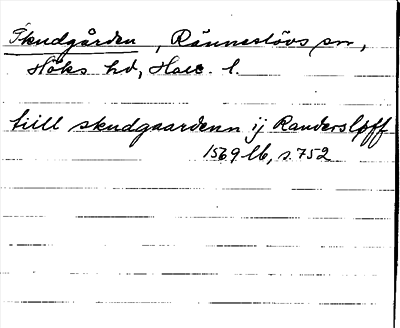 Skudgården, Ränneslövs sn,
Höks hd, Hall. l.
till skudgaardenn ij Randersløff
1569 lb, s. 752